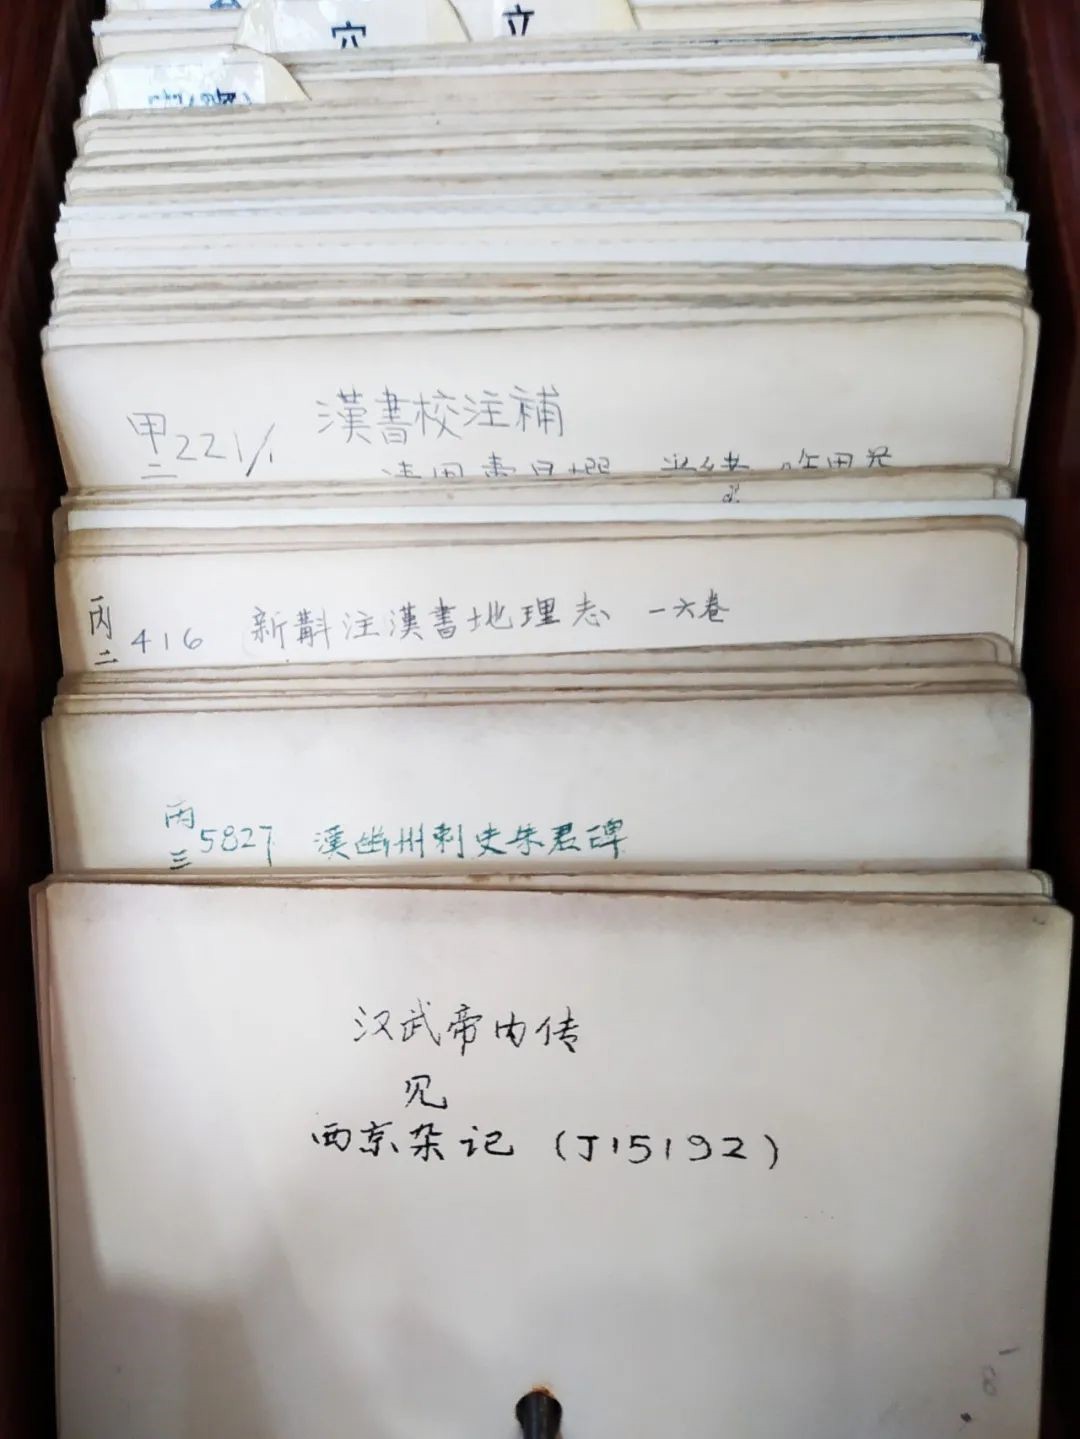 穴
立
甲二 221/1 漢書校注補
丙二 416 新斠注漢書地理志 一六卷
丙三 5827 漢幽州刺史朱君碑
汉武帝内传
见
西京杂记 (J15192)